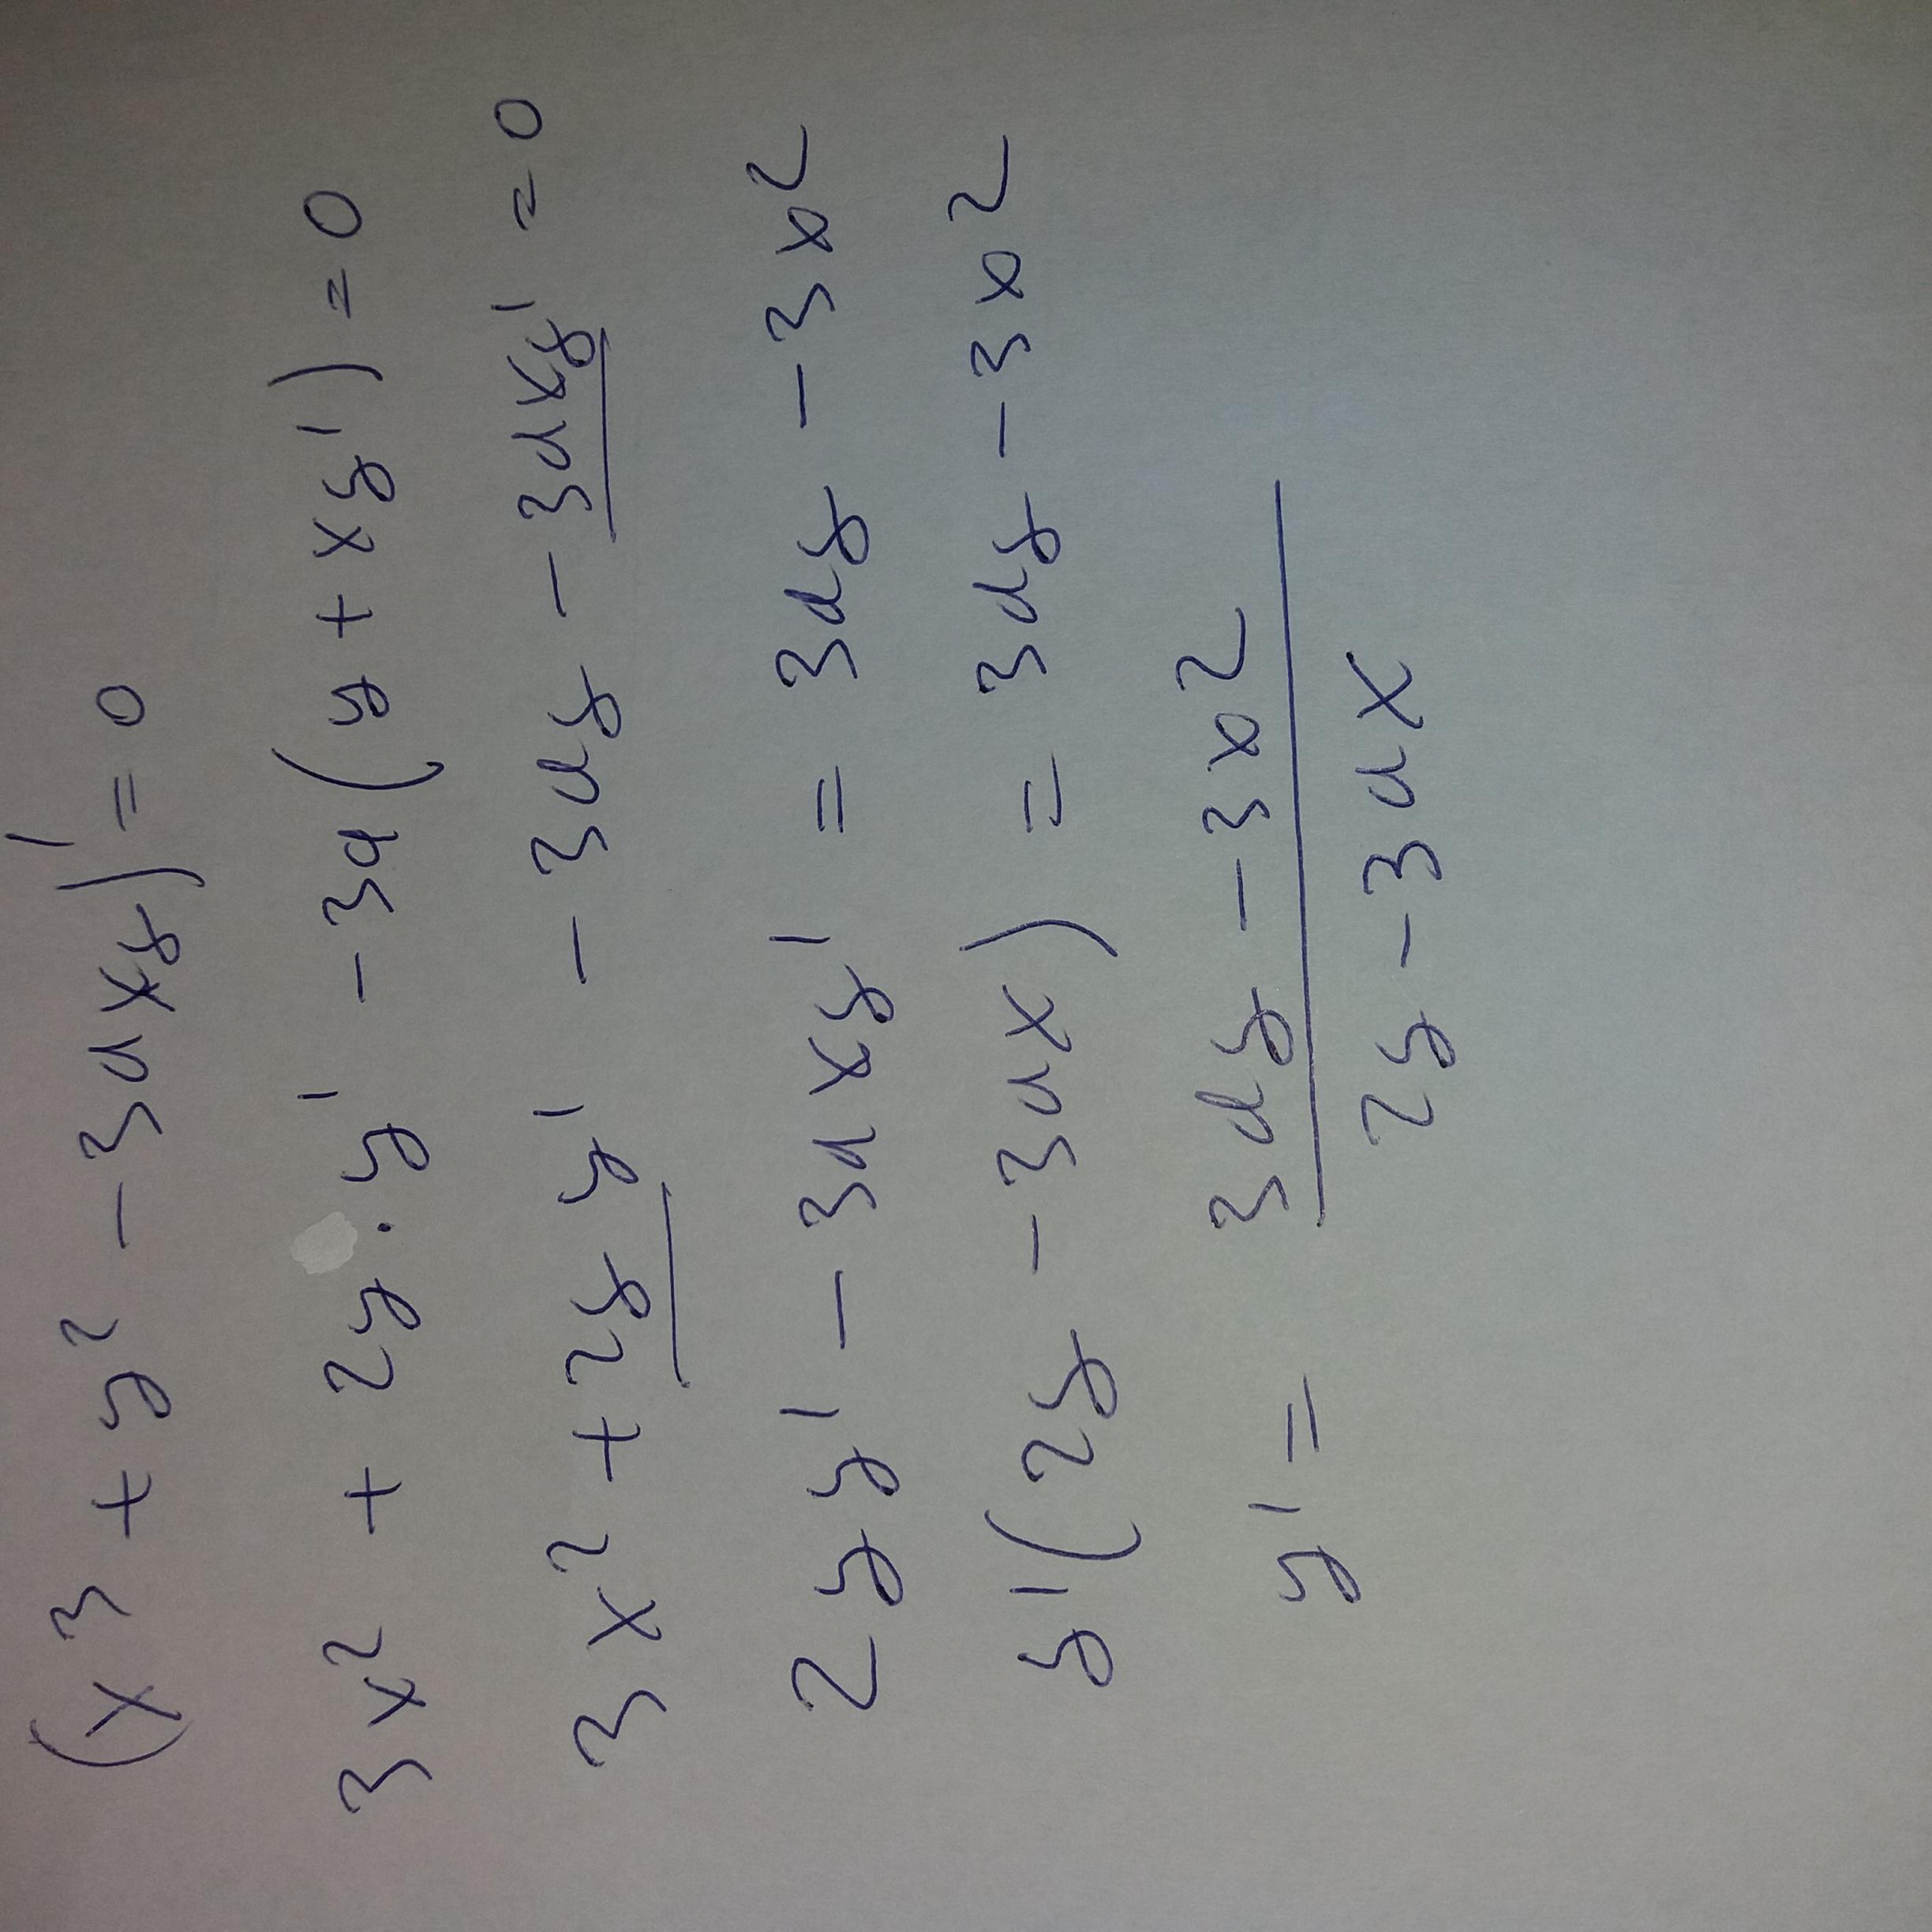 (x³ + y² - 3axy)' = 0
3x² + 2y · y' - 3a(y + xy') = 0
3x² + 2yy' - 3ay - 3axy' = 0
2yy' - 3axy' = 3ay - 3x²
y'(2y - 3ax) = 3ay - 3x²
y' = 3ay - 3x²
2y - 3ax